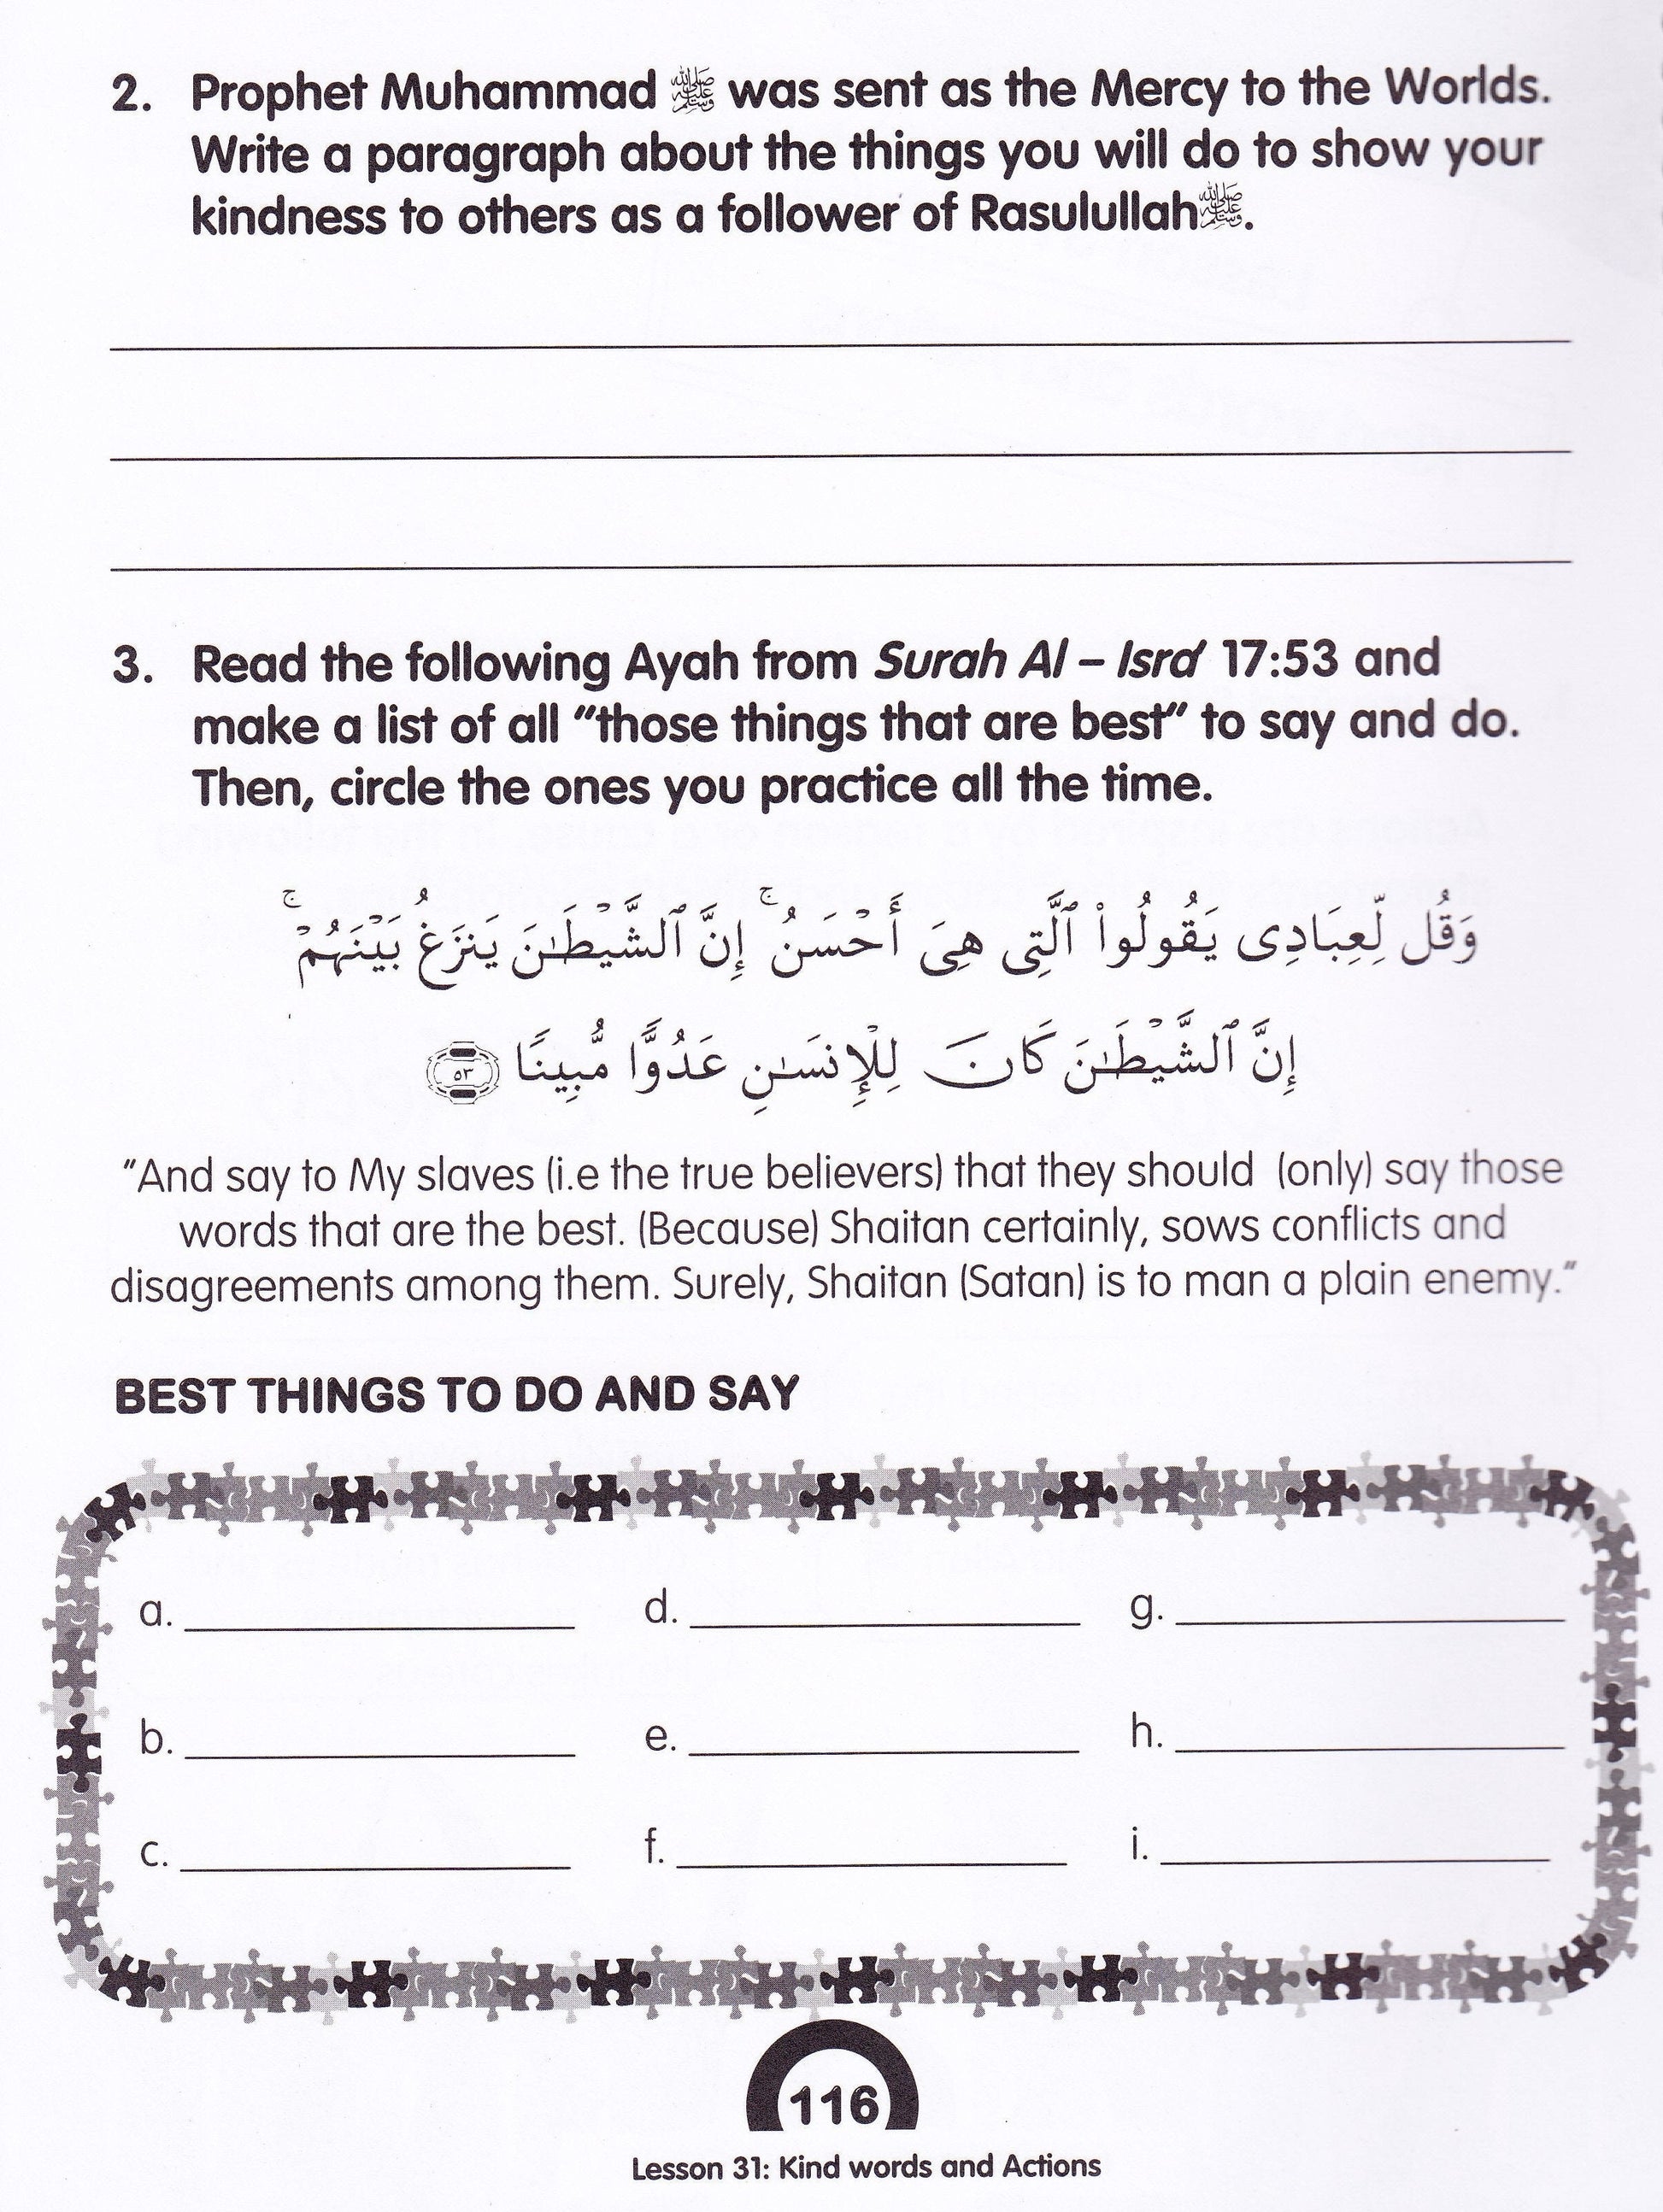 2. Prophet Muhammad ﷺ was sent as the Mercy to the Worlds.
Write a paragraph about the things you will do to show your
kindness to others as a follower of Rasulullahﷺ.
3. Read the following Ayah from Surah Al – Isra' 17:53 and
make a list of all "those things that are best" to say and do.
Then, circle the ones you practice all the time.
وَقُل لِّعِبَادِى يَقُولُوا۟ ٱلَّتِى هِىَ أَحْسَنُ ۚ إِنَّ ٱلشَّيْطَـٰنَ يَنزَغُ بَيْنَهُمْ ۚ
إِنَّ ٱلشَّيْطَـٰنَ كَانَ لِلْإِنسَـٰنِ عَدُوًّا مُّبِينًا ٥٣
"And say to My slaves (i.e the true believers) that they should (only) say those
words that are the best. (Because) Shaitan certainly, sows conflicts and
disagreements among them. Surely, Shaitan (Satan) is to man a plain enemy."
BEST THINGS TO DO AND SAY
a. d. g.
b. e. h.
c. f. i.
116
Lesson 31: Kind words and Actions